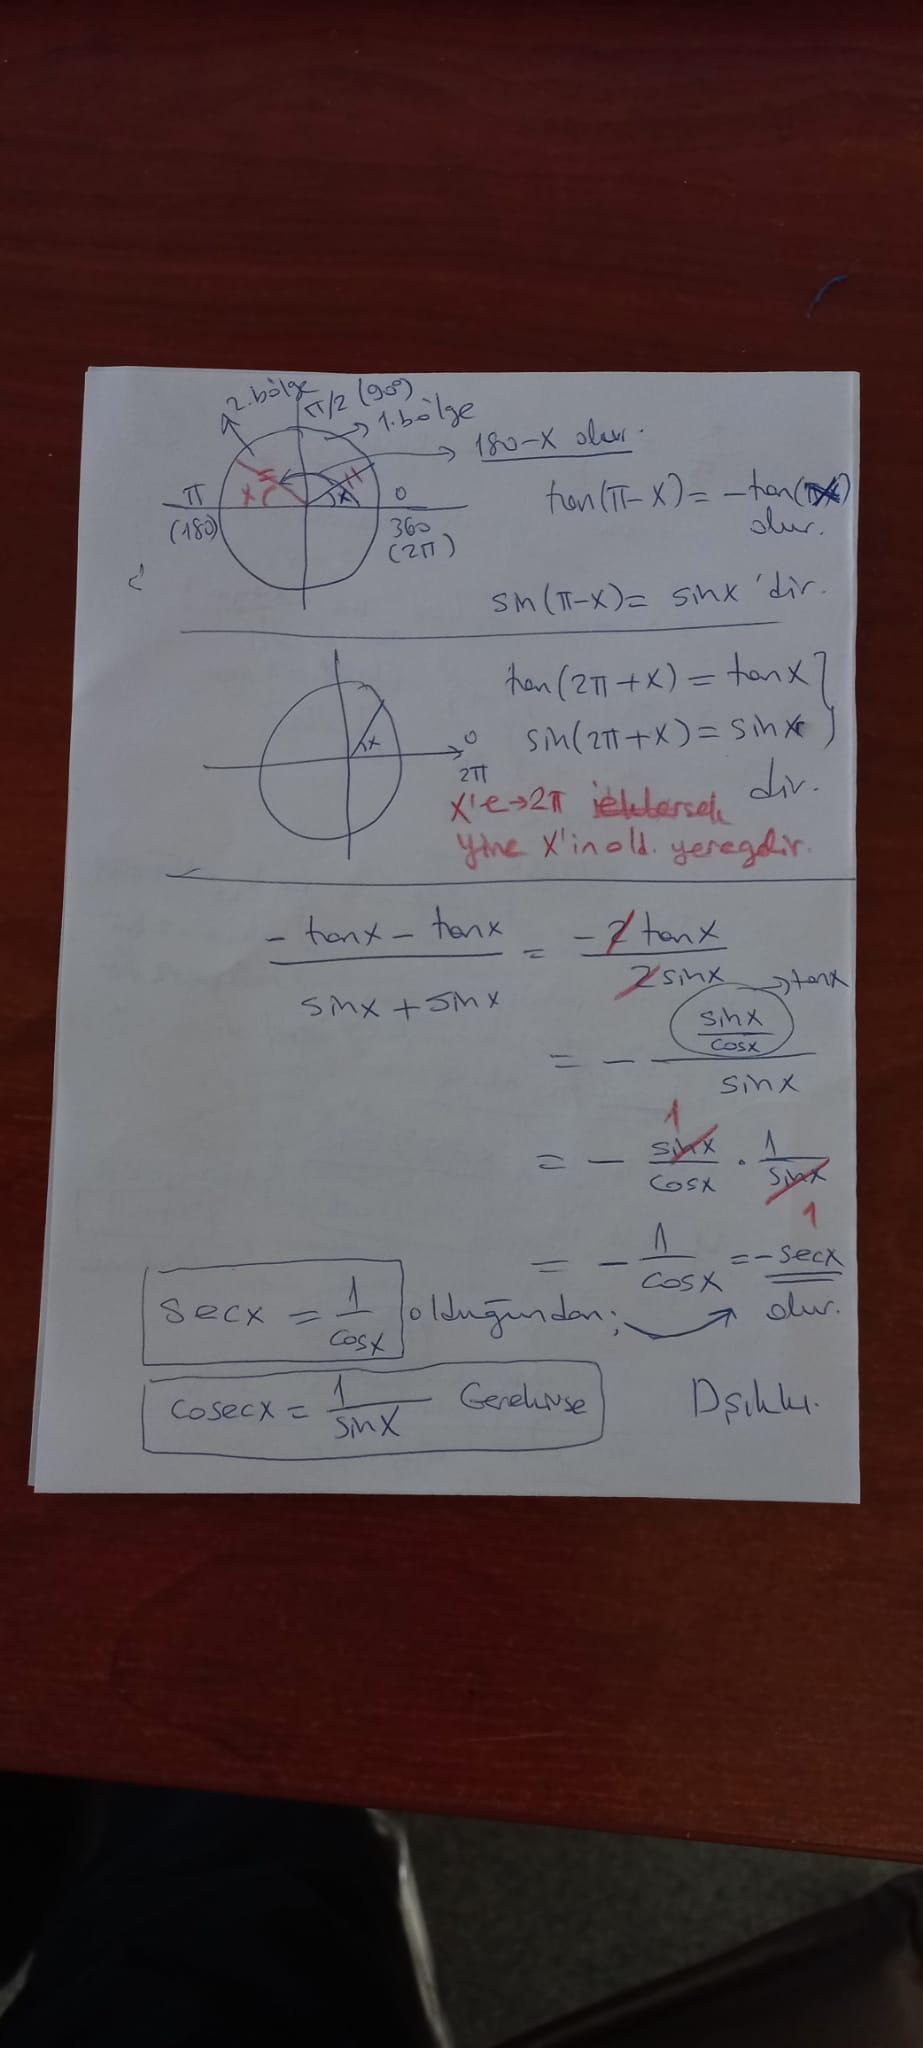 2.bölge
π/2 (90°)
1.bölge
180-x olur.
π
(180)
x
x
x
0
360
(2π)
tan(π-x) = -tan(x)
olur.
sin(π-x) = sinx 'dir.
x
0
2π
tan(2π+x) = tanx
sin(2π+x) = sinx
dir.
x'e→2π eklersek
yine x'in old. yeregelir.
(- tanx - tanx)/(sinx + sinx) = (-2tanx)/(2sinx)
→tanx
= - (sinx/cosx)/sinx
1
= - sinx/cosx . 1/sinx
1
= - 1/cosx = -secx
olur.
secx = 1/cosx olduğundan;
cosecx = 1/sinx Gerekirse
D şıkkı.